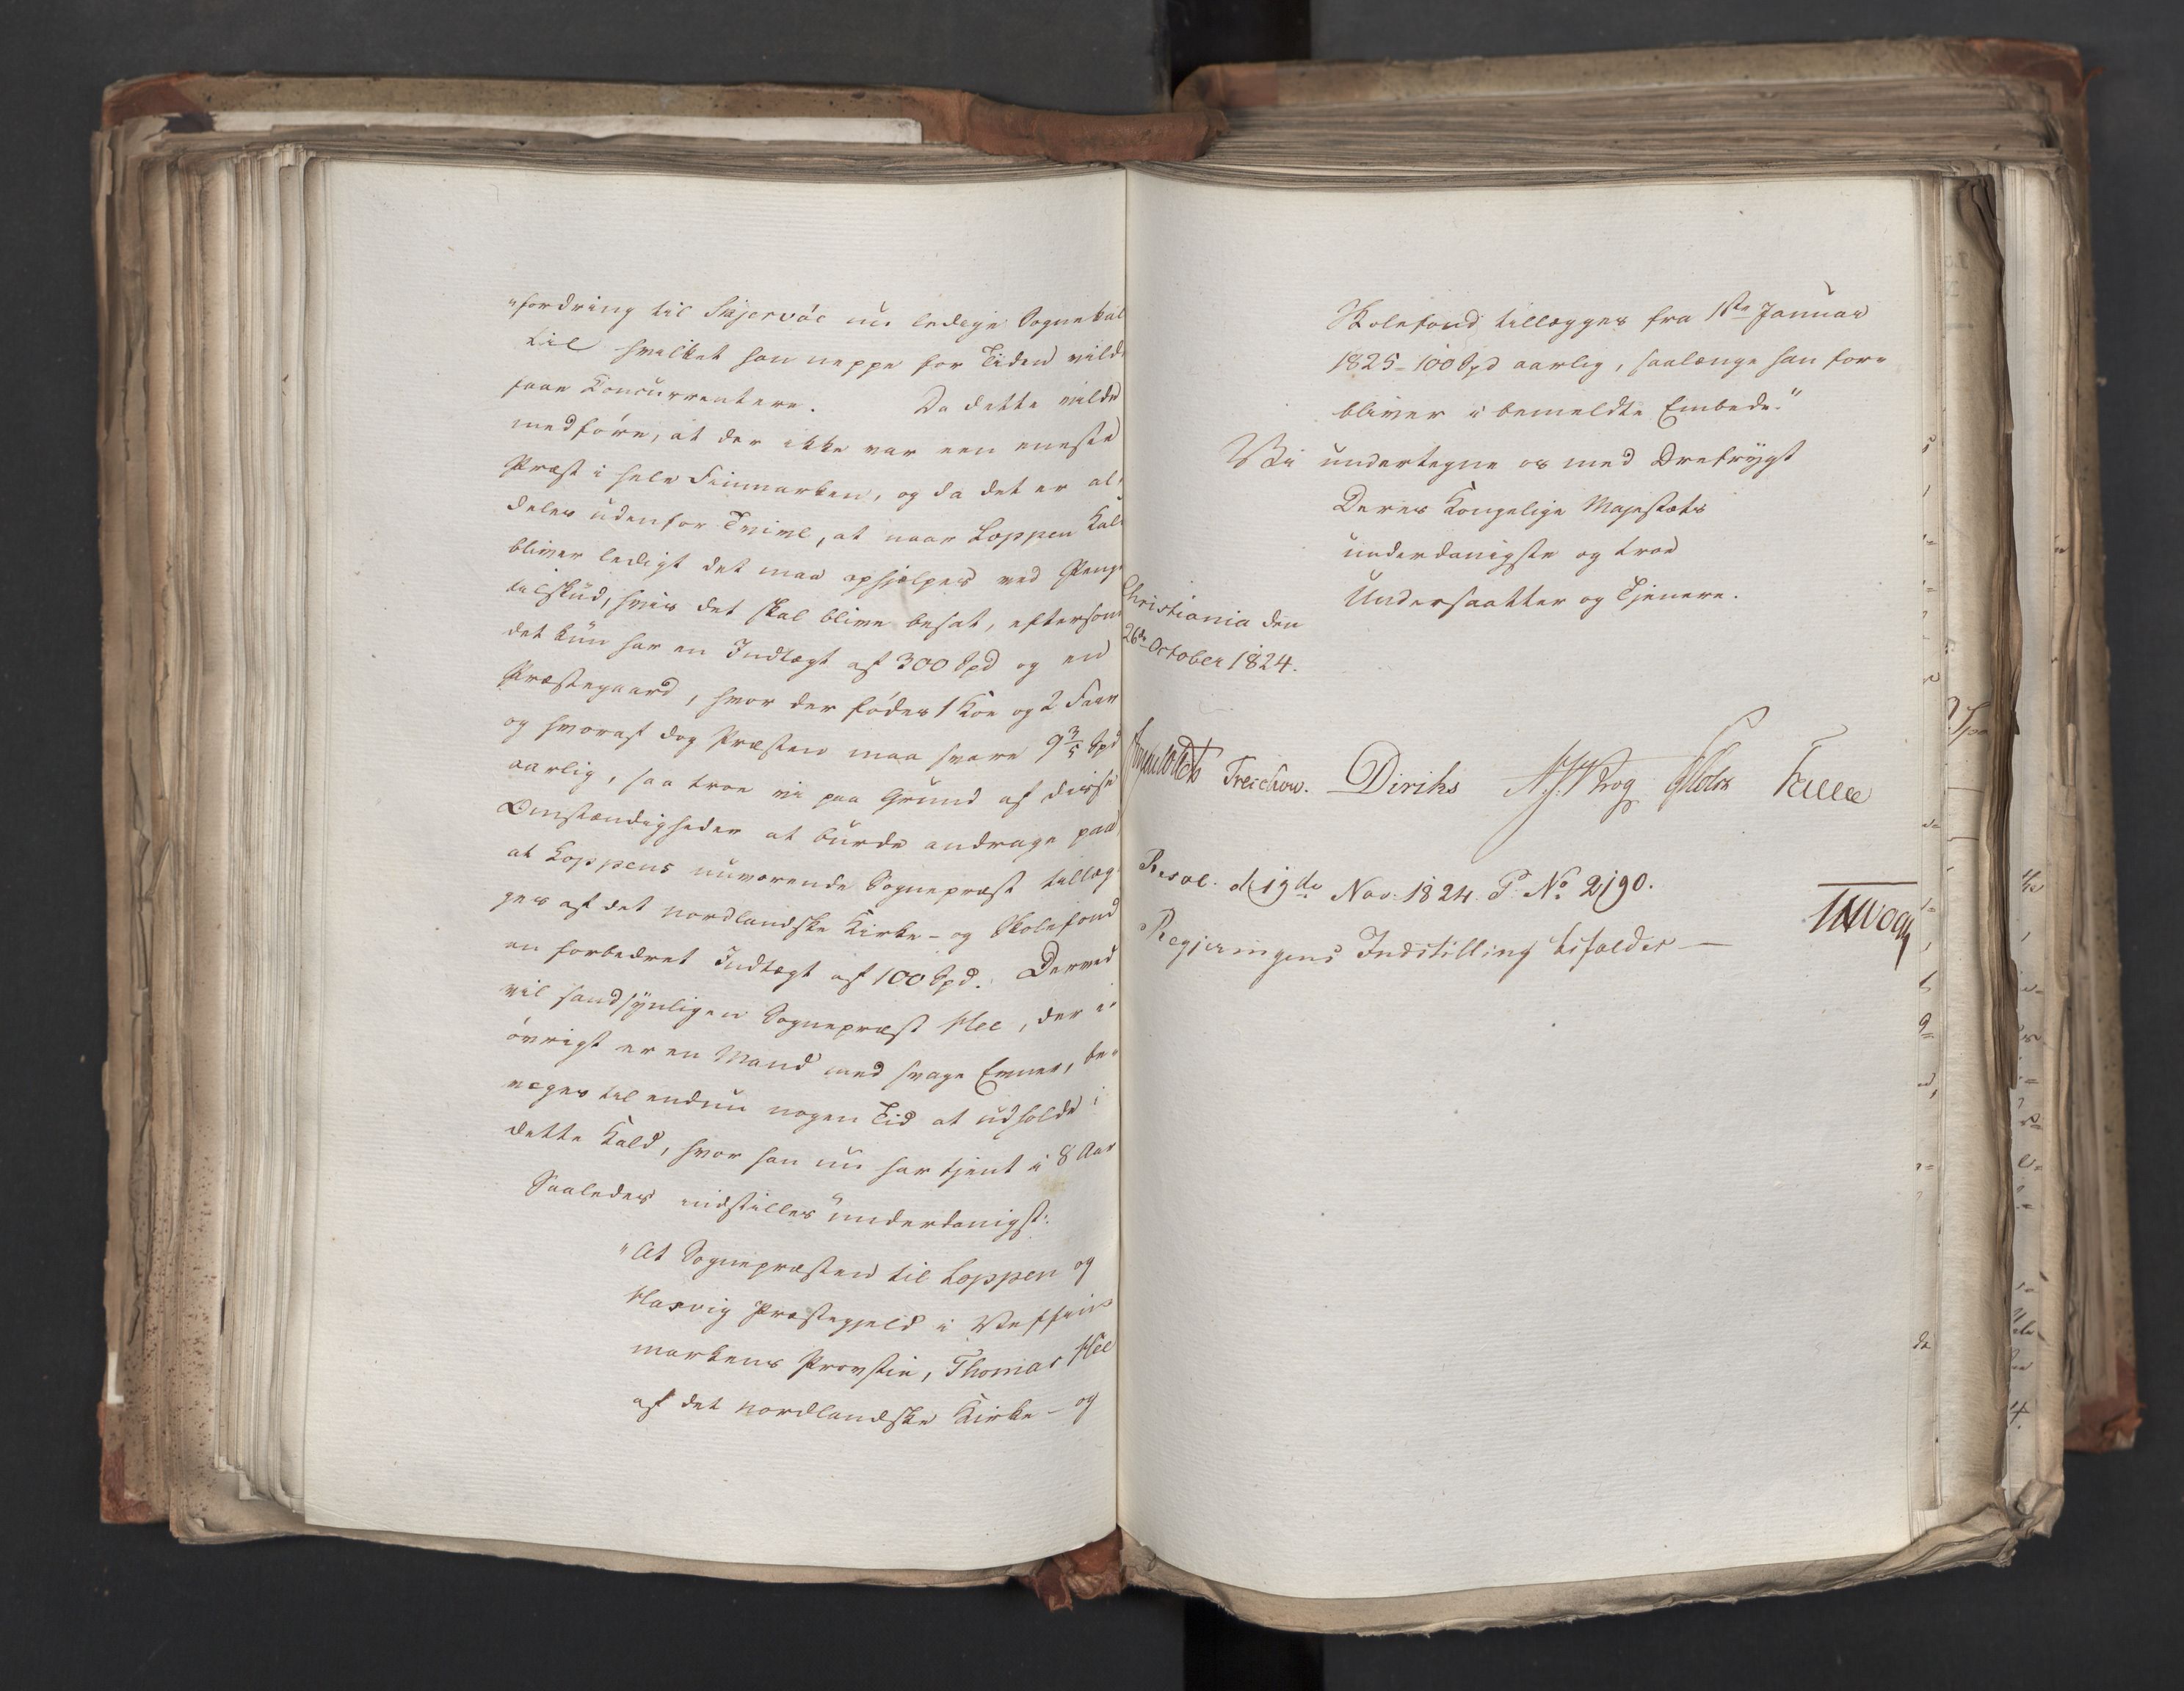 "fordring til Skjervöe nu ledige Sognekal
til hvilket han neppe for Tiden vilde
faae Concurrentere. Da dette vilde
medføre, at der ikke var een eneste
Præst i hele Finmarken, og da det er al-
deles udenfor Tvivl, at naar Loppen Kal
bliver ledigt det maa ophjælpes ved Penge
tilskud, hvis det skal blive besat, eftersom
det kun har en Indtægt af 300 Spd og en
Præstegaard, hvor der fødes 1 Koe og 2 Faar
og hvoraf dog Præsten maa svare 9 3/5 Spd
aarlig, saa troe vi paa Grund af disse
Omstændigheder at burde andrage paa
at Loppens nuværende Sognepræst tillæg
ges af det nordlandske Kirke- og Skolefond
en forbedret Indtægt af 100 Spd. Derved
vil sandsynligen Sognepræst Hee, der i"
övrigt er en Mand med svage Evner, be"
væges til endnu nogen Tid at udholde i
dette Kald, hvor han nu har tjent i 8 Aar
Saaledes indstilles underdanigst:
"At Sognepræsten til Loppen og
Hasvig Præstegjeld i Vestfin
markens Provstie, Thomas Hee
af det nordlandske Kirke- og
Skolefond tillægges fra 1ste Januar
1825 - 100 Spd aarlig, saalænge han for"
bliver i bemeldte Embede."
Vi undertegne os med Ærefrygt
Deres Kongelige Majestæts
underdanigste og troe
Undersaatter og Tjenere.
Christiania den
26de October 1824.
Treschow. Diriks Krog Holst Fasting
Resol. d 19de Nov. 1824. P. No 2190.
Regjeringens Indstilling bifaldes —